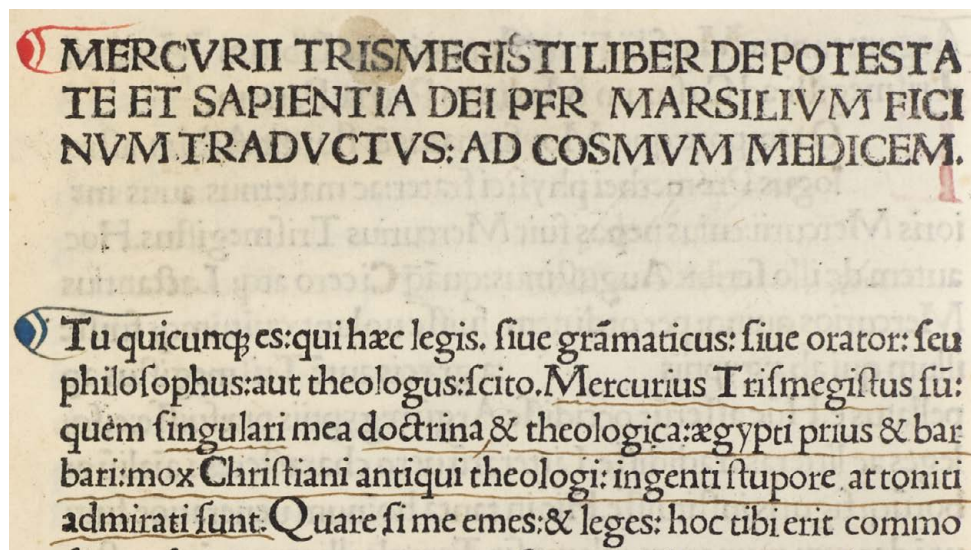 MERCVRII TRISMEGISTI LIBER DE POTESTA
TE ET SAPIENTIA DEI PER MARSILIVM FICI
NVM TRADVCTVS: AD COSMVM MEDICEM.
Tu quicunqꝫ es:qui hæc legis. ſiue grāmaticus: ſiue orator: ſeu
philoſophus:aut theologus:ſcito.Mercurius Triſmegiſtus ſū:
quem ſingulari mea doctrina & theologica:ægypti prius & bar
bari:mox Chriſtiani antiqui theologi: ingenti ſtupore attoniti
admirati ſunt.Quare ſi me emes:& leges: hoc tibi erit commo